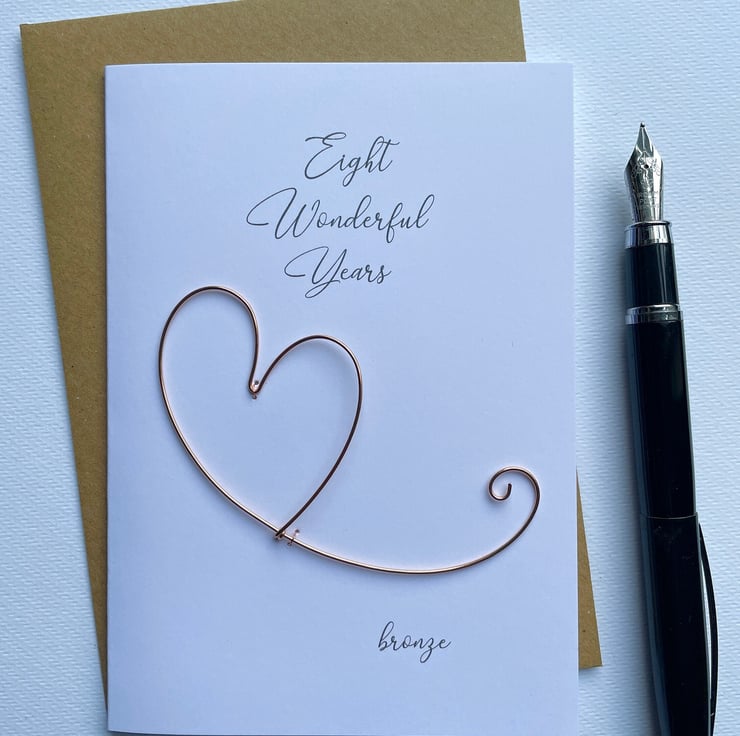 Eight
Wonderful
Years
bronze